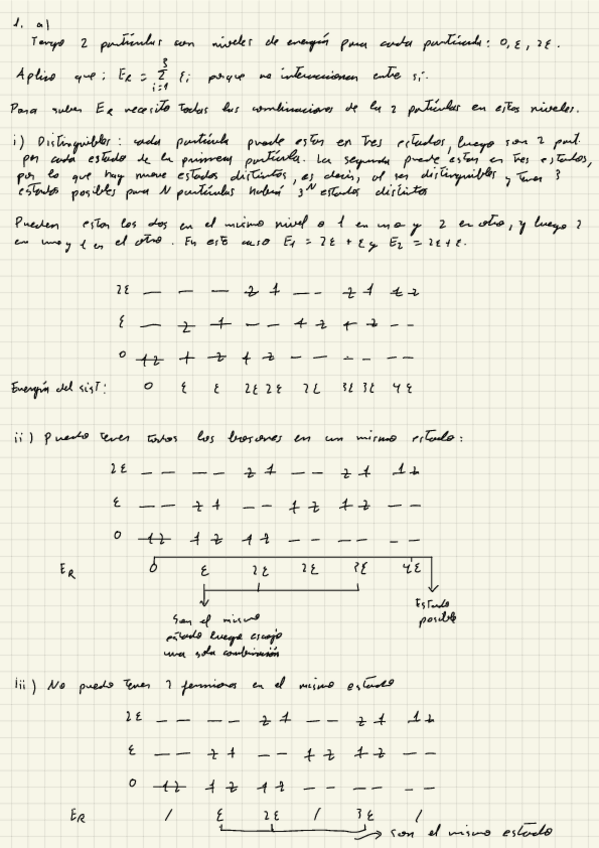 1. a)
Tengo 2 partículas con niveles de energía para cada partícula: 0, ε, 2ε.
Aplico que: E_R = Σ_{i=1}^{3} ε_i porque no interaccionan entre sí.
Para saber E_R necesito todas las combinaciones de la 2 partículas en estos niveles.
i) Distinguibles: cada partícula puede estar en tres estados, luego son 2 part.
por cada estado de la primera partícula. La segunda puede estar en tres estados,
por lo que hay nueve estados distintos, es decir, al ser distinguibles y tener 3
estados posibles para N partículas habrá 3^N estados distintos
Pueden estar los dos en el mismo nivel o 1 en uno y 2 en otro, y luego 2
en uno y 1 en el otro. En este caso E_1 = 2ε + ε y E_2 = 2ε + ε.
2ε — — — 2 1 — — 2 1 1 2
ε — 2 1 — — 1 2 1 2 — —
0 1 2 1 2 1 2 — — — — — —
Energía del sist: 0 ε ε 2ε 2ε 2ε 3ε 3ε 4ε
ii) Puedo tener todos los bosones en un mismo estado:
2ε — — — — 2 1 — — 2 1 1 2
ε — — 2 1 — — 1 2 1 2 — —
0 1 2 1 2 1 2 — — — — — —
E_R 0 ε 2ε 2ε 3ε 4ε
Son el mismo
estado luego escojo
una sola combinación
Estado
posible
iii) No puedo tener 2 fermiones en el mismo estado
2ε — — — — 2 1 — — 2 1 1 2
ε — — 2 1 — — 1 2 1 2 — —
0 1 2 1 2 1 2 — — — — — —
E_R / ε 2ε / 3ε /
son el mismo estado